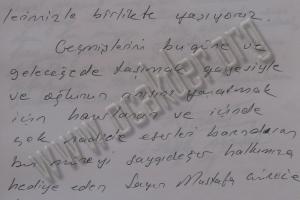 lerimizle birlikte yaşıyoruz.
Geçmişlerini bugüne ve
geleceğede taşımak gayesiyle
ve oğlunun anısını yaşatmak
için hazırlanan ve içinde
çok nadide eserleri barındıran
bu müzeyi saygıdeğer halkımıza
hediye eden Sayın Mustafa